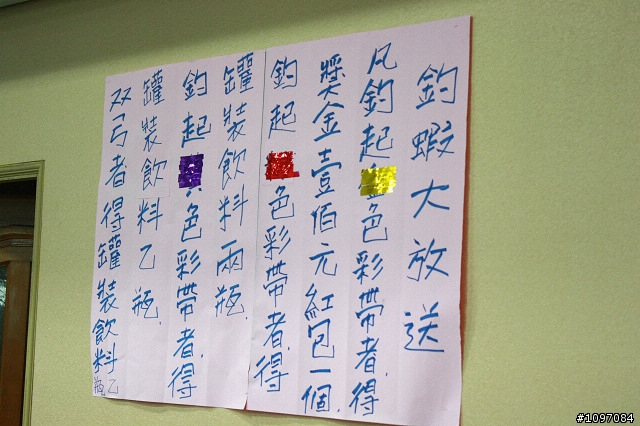 釣蝦大放送
凡釣起金色彩帶者,得
獎金壹佰元紅包一個.
釣起色彩帶者.得
罐裝飲料兩瓶.
釣起色彩帶者.得
罐裝飲料乙瓶.
双弓者得罐裝飲料乙瓶
#1097084